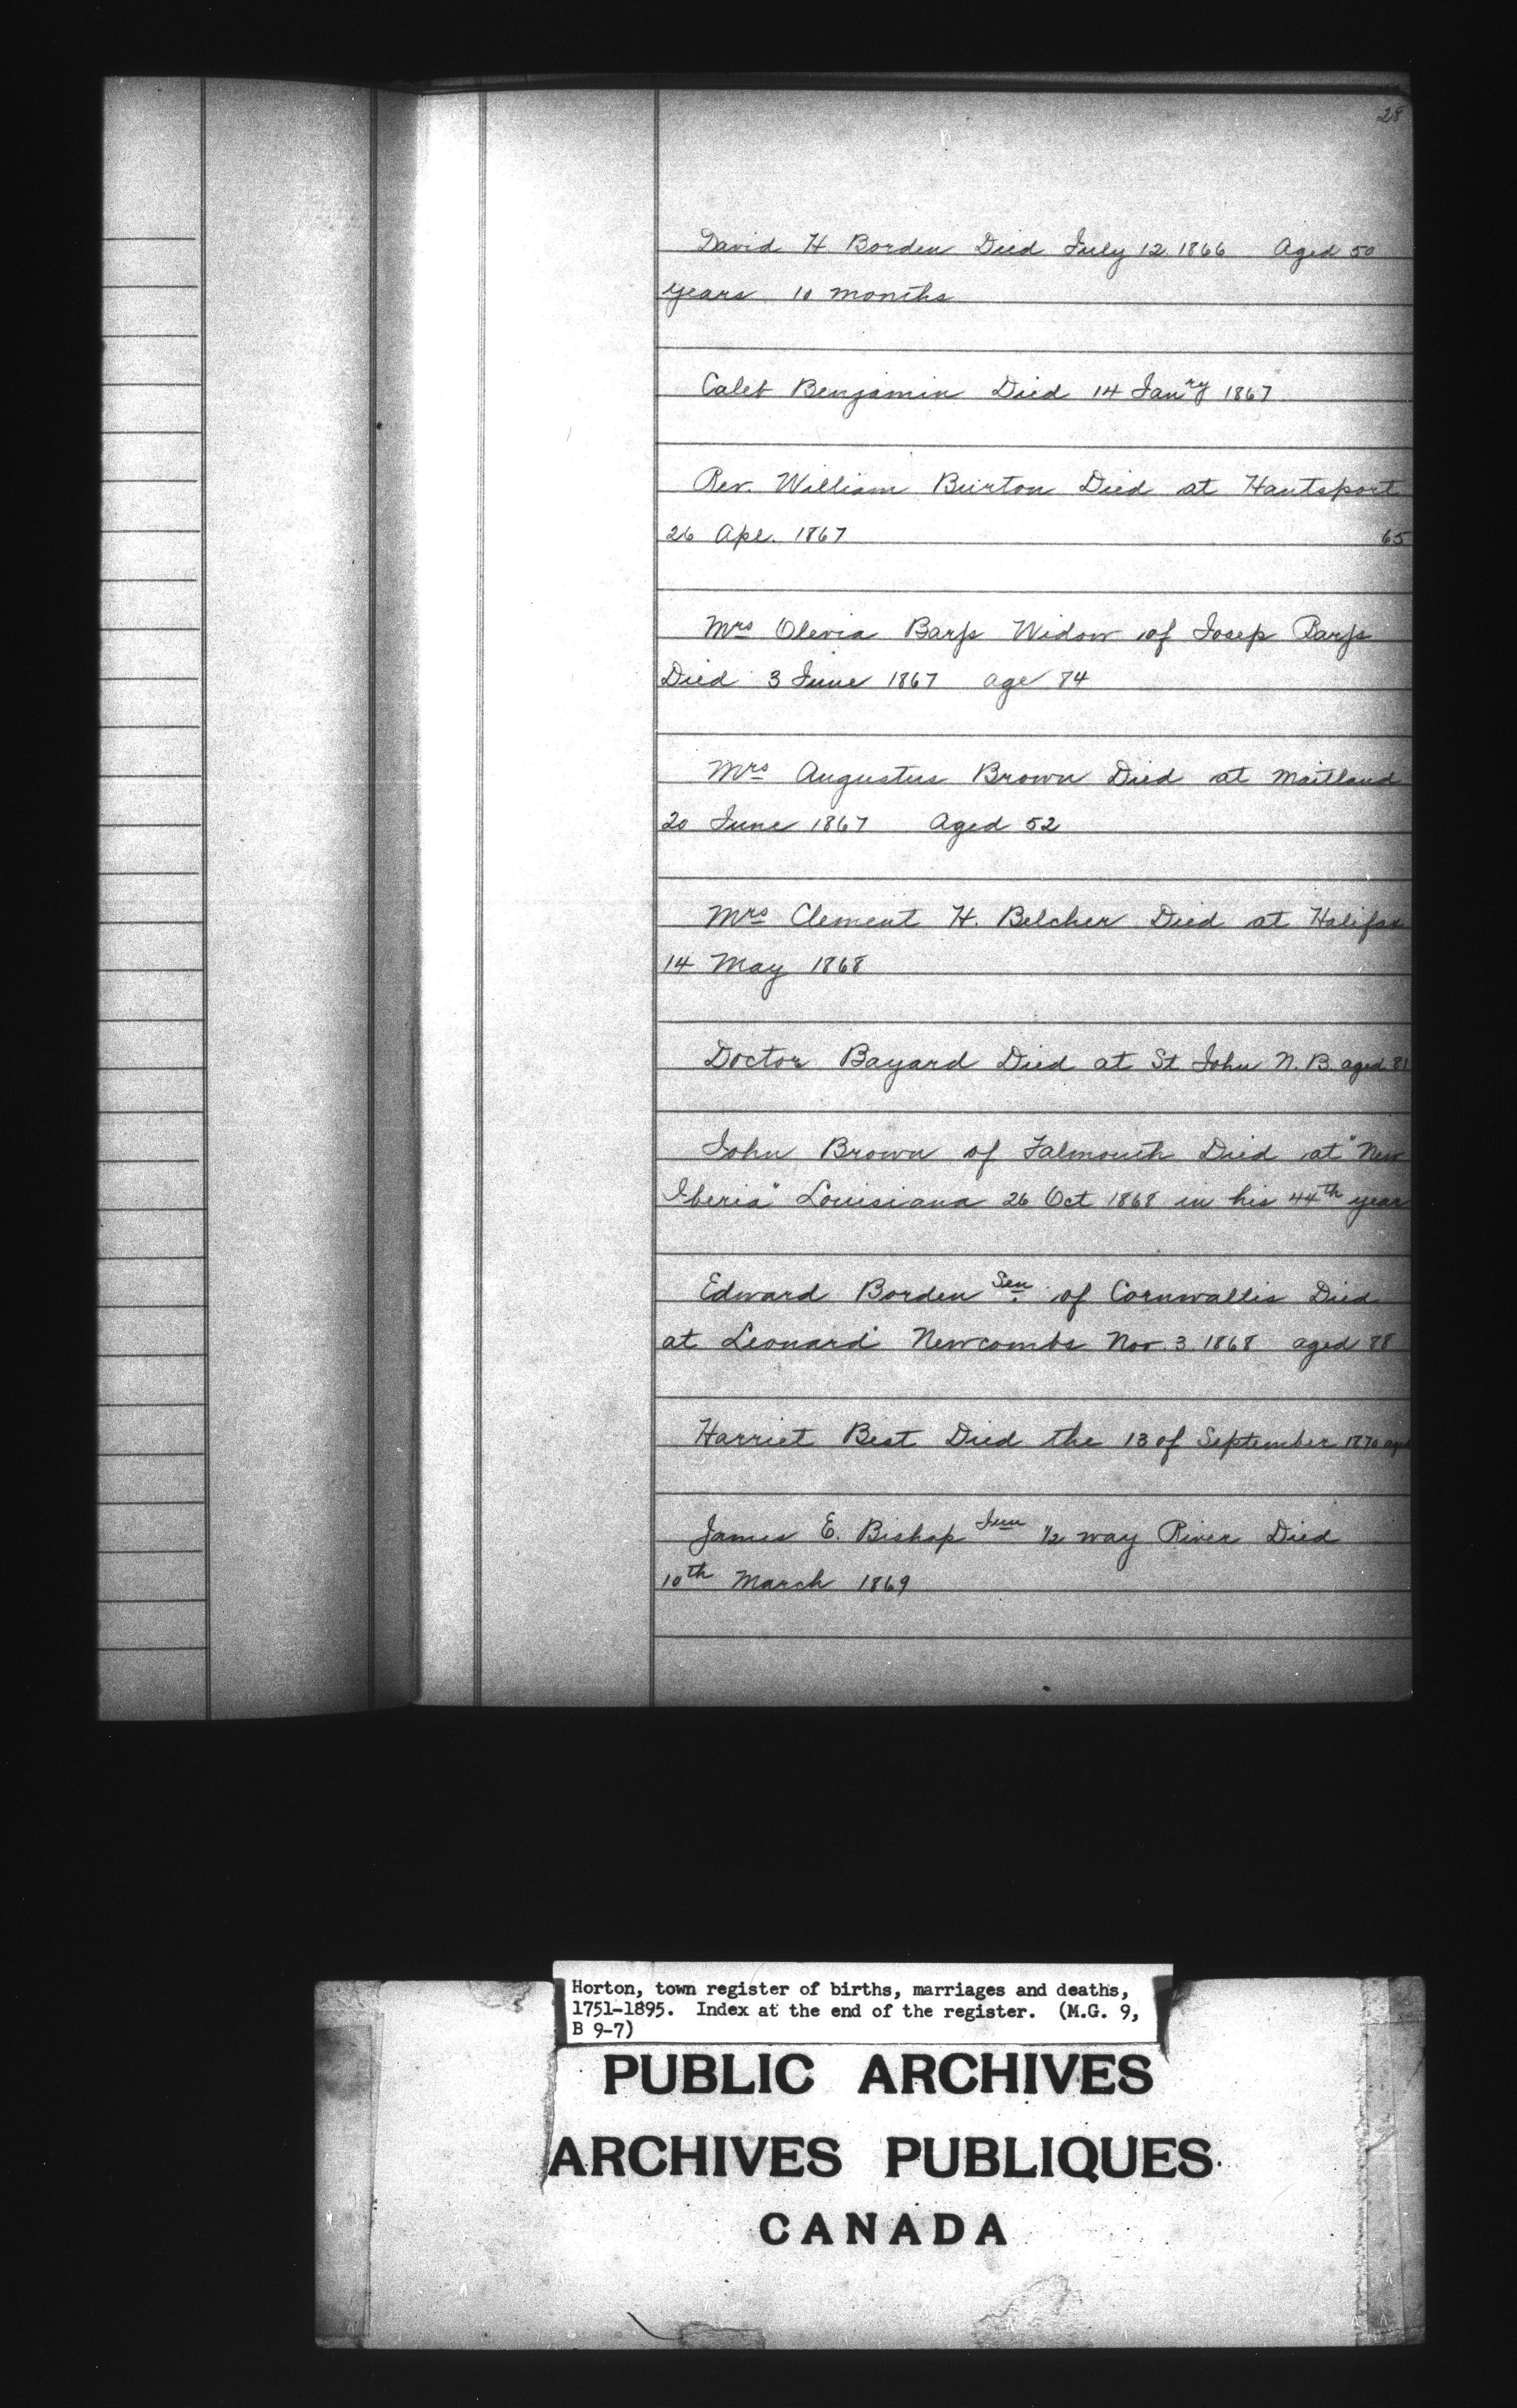 28
David H Borden Died July 12. 1866 Aged 50
years 10 months
Caleb Benjamin Died 14 Janry 1867
Rev. William Burton Died at Hantsport
26 Apl. 1867 65
Mrs Olevia Barss Widow of Josep Barss
Died 3 June 1867 age 84
Mrs Augustus Brown Died at Maitland
20 June 1867 Aged 52
Mrs Clement H. Belcher Died at Halifax
14 May 1868
Doctor Bayard Died at St John N. B. aged 81
John Brown of Falmouth Died at "New
Iberia" Louisiana 26 Oct 1868 in his 44th year
Edward Borden Sen. of Cornwallis Died
at Leonard Newcombs Nov. 3. 1868 aged 88
Harriet Best Died the 13 of September 1870
James E. Bishop Jun 1/2 way River Died
10th March 1869
Horton, town register of births, marriages and deaths,
1751-1895. Index at the end of the register. (M.G. 9,
B 9-7)
PUBLIC ARCHIVES
ARCHIVES PUBLIQUES
CANADA